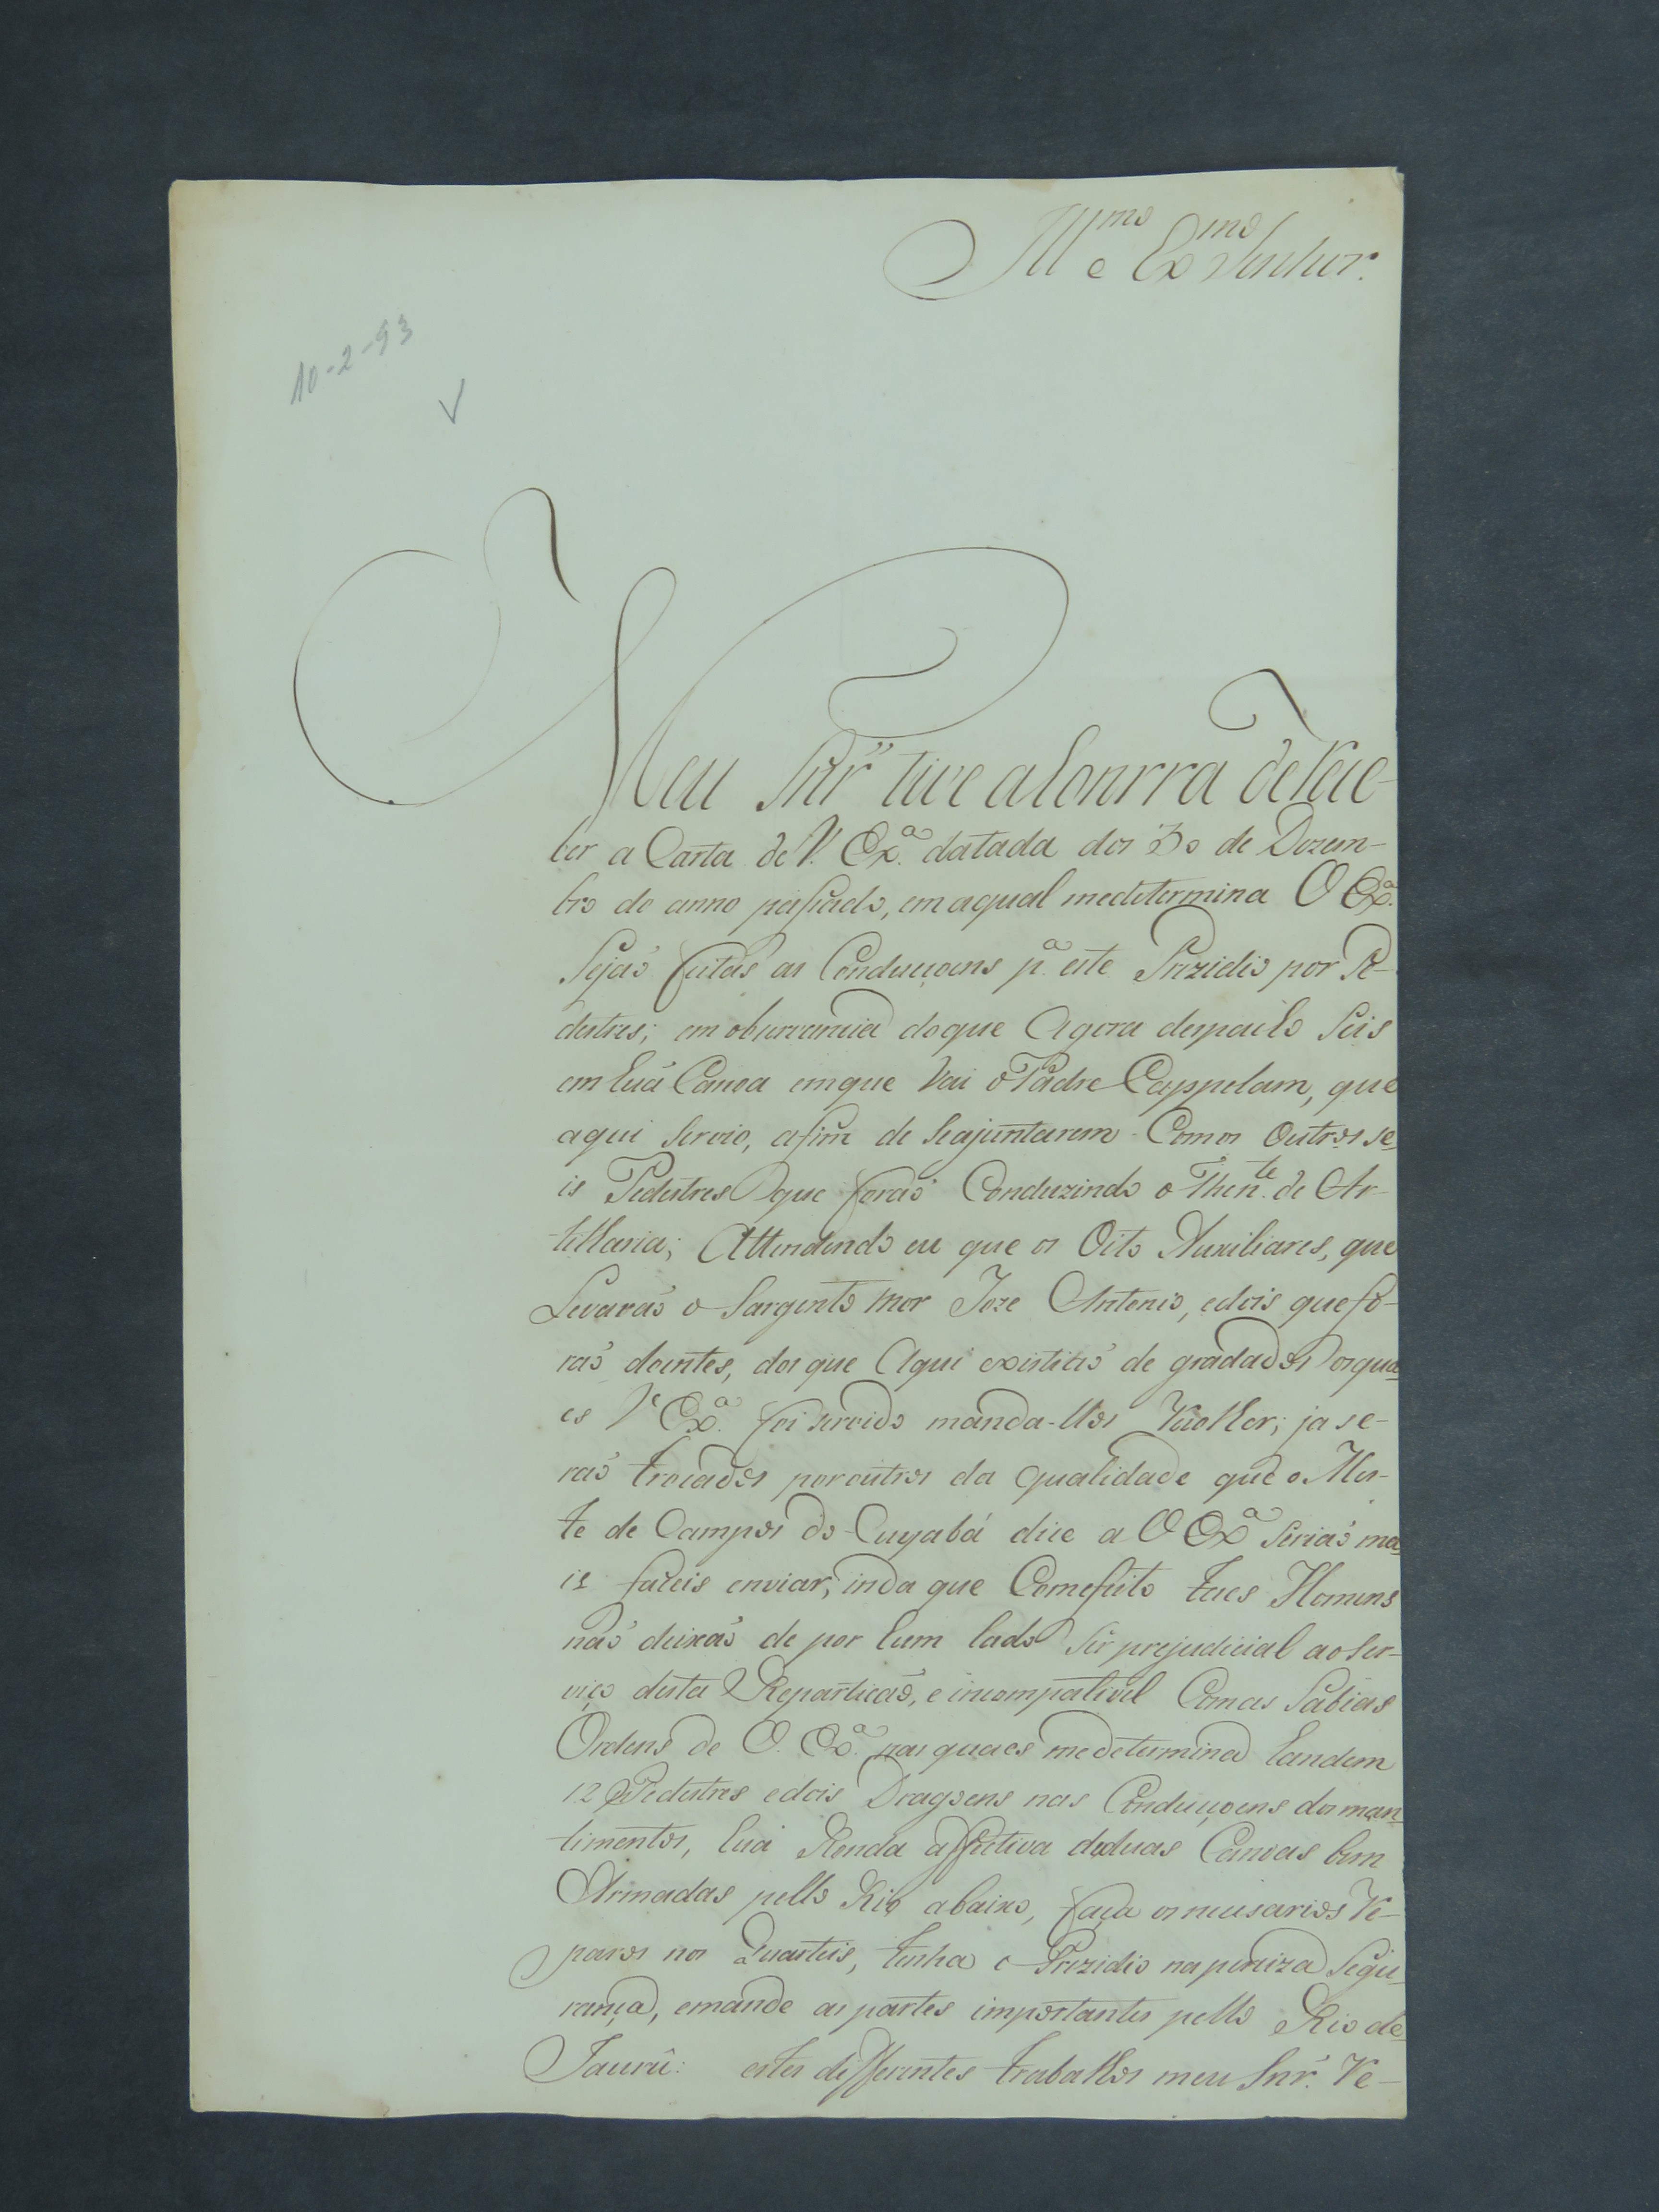 Ill.mo e Ex.mo Senhor.
10-2-93
Meu Snr' tive a honrra de rece-
ber a Carta de V. Ex.a datada dos 30 de Dezem-
bro do anno passado, em aqual medetermina V Ex.a
Sejaõ feitas as Conduçoens p.a este Prezidio por Pe-
destres; em observancia doque Agora despacho Seis
em huã Canoa emque Vai o Padre Cappelam, que
aqui Servio, afim de Seajuntarem Comos Outros se-
is Pedestres que foraõ Conduzindo o Then.te de Ar-
tilharia; Attendendo eu que os Oito Auxiliares, que
Levaraõ o Sargento mor Joze Antonio, edois quefo-
raõ doentes, dos que Aqui existiaõ de gradados osqua-
es V Ex.a foi servido manda-llos Recolher; ja se-
raõ trocados poroutros da qualidade que o Mes-
te de Campos do Cuyabá dice a V Ex.a Seriaõ ma-
is faceis enviar; inda que Comefeito taes Homens
naõ deixaõ de por hum lado Ser prejudicial ao Ser-
viço desta Repartiçaõ, e incompativel Comas Sabias
Ordens de V. Ex.a nas quaes medetermina handem
12 Pedestres edois Dragoens nas Conduçoens dos man-
timentos, huã Ronda affectiva deduas Canoas bem
Armadas pello Rio abaixo, faça os necesarios Re-
paros nos Quarteis, tenha o Prezidio na preciza Segu-
rança, emande as partes importantes pello Rio de
Jaurû: estes differentes trabalhos meu Snr'. Re-